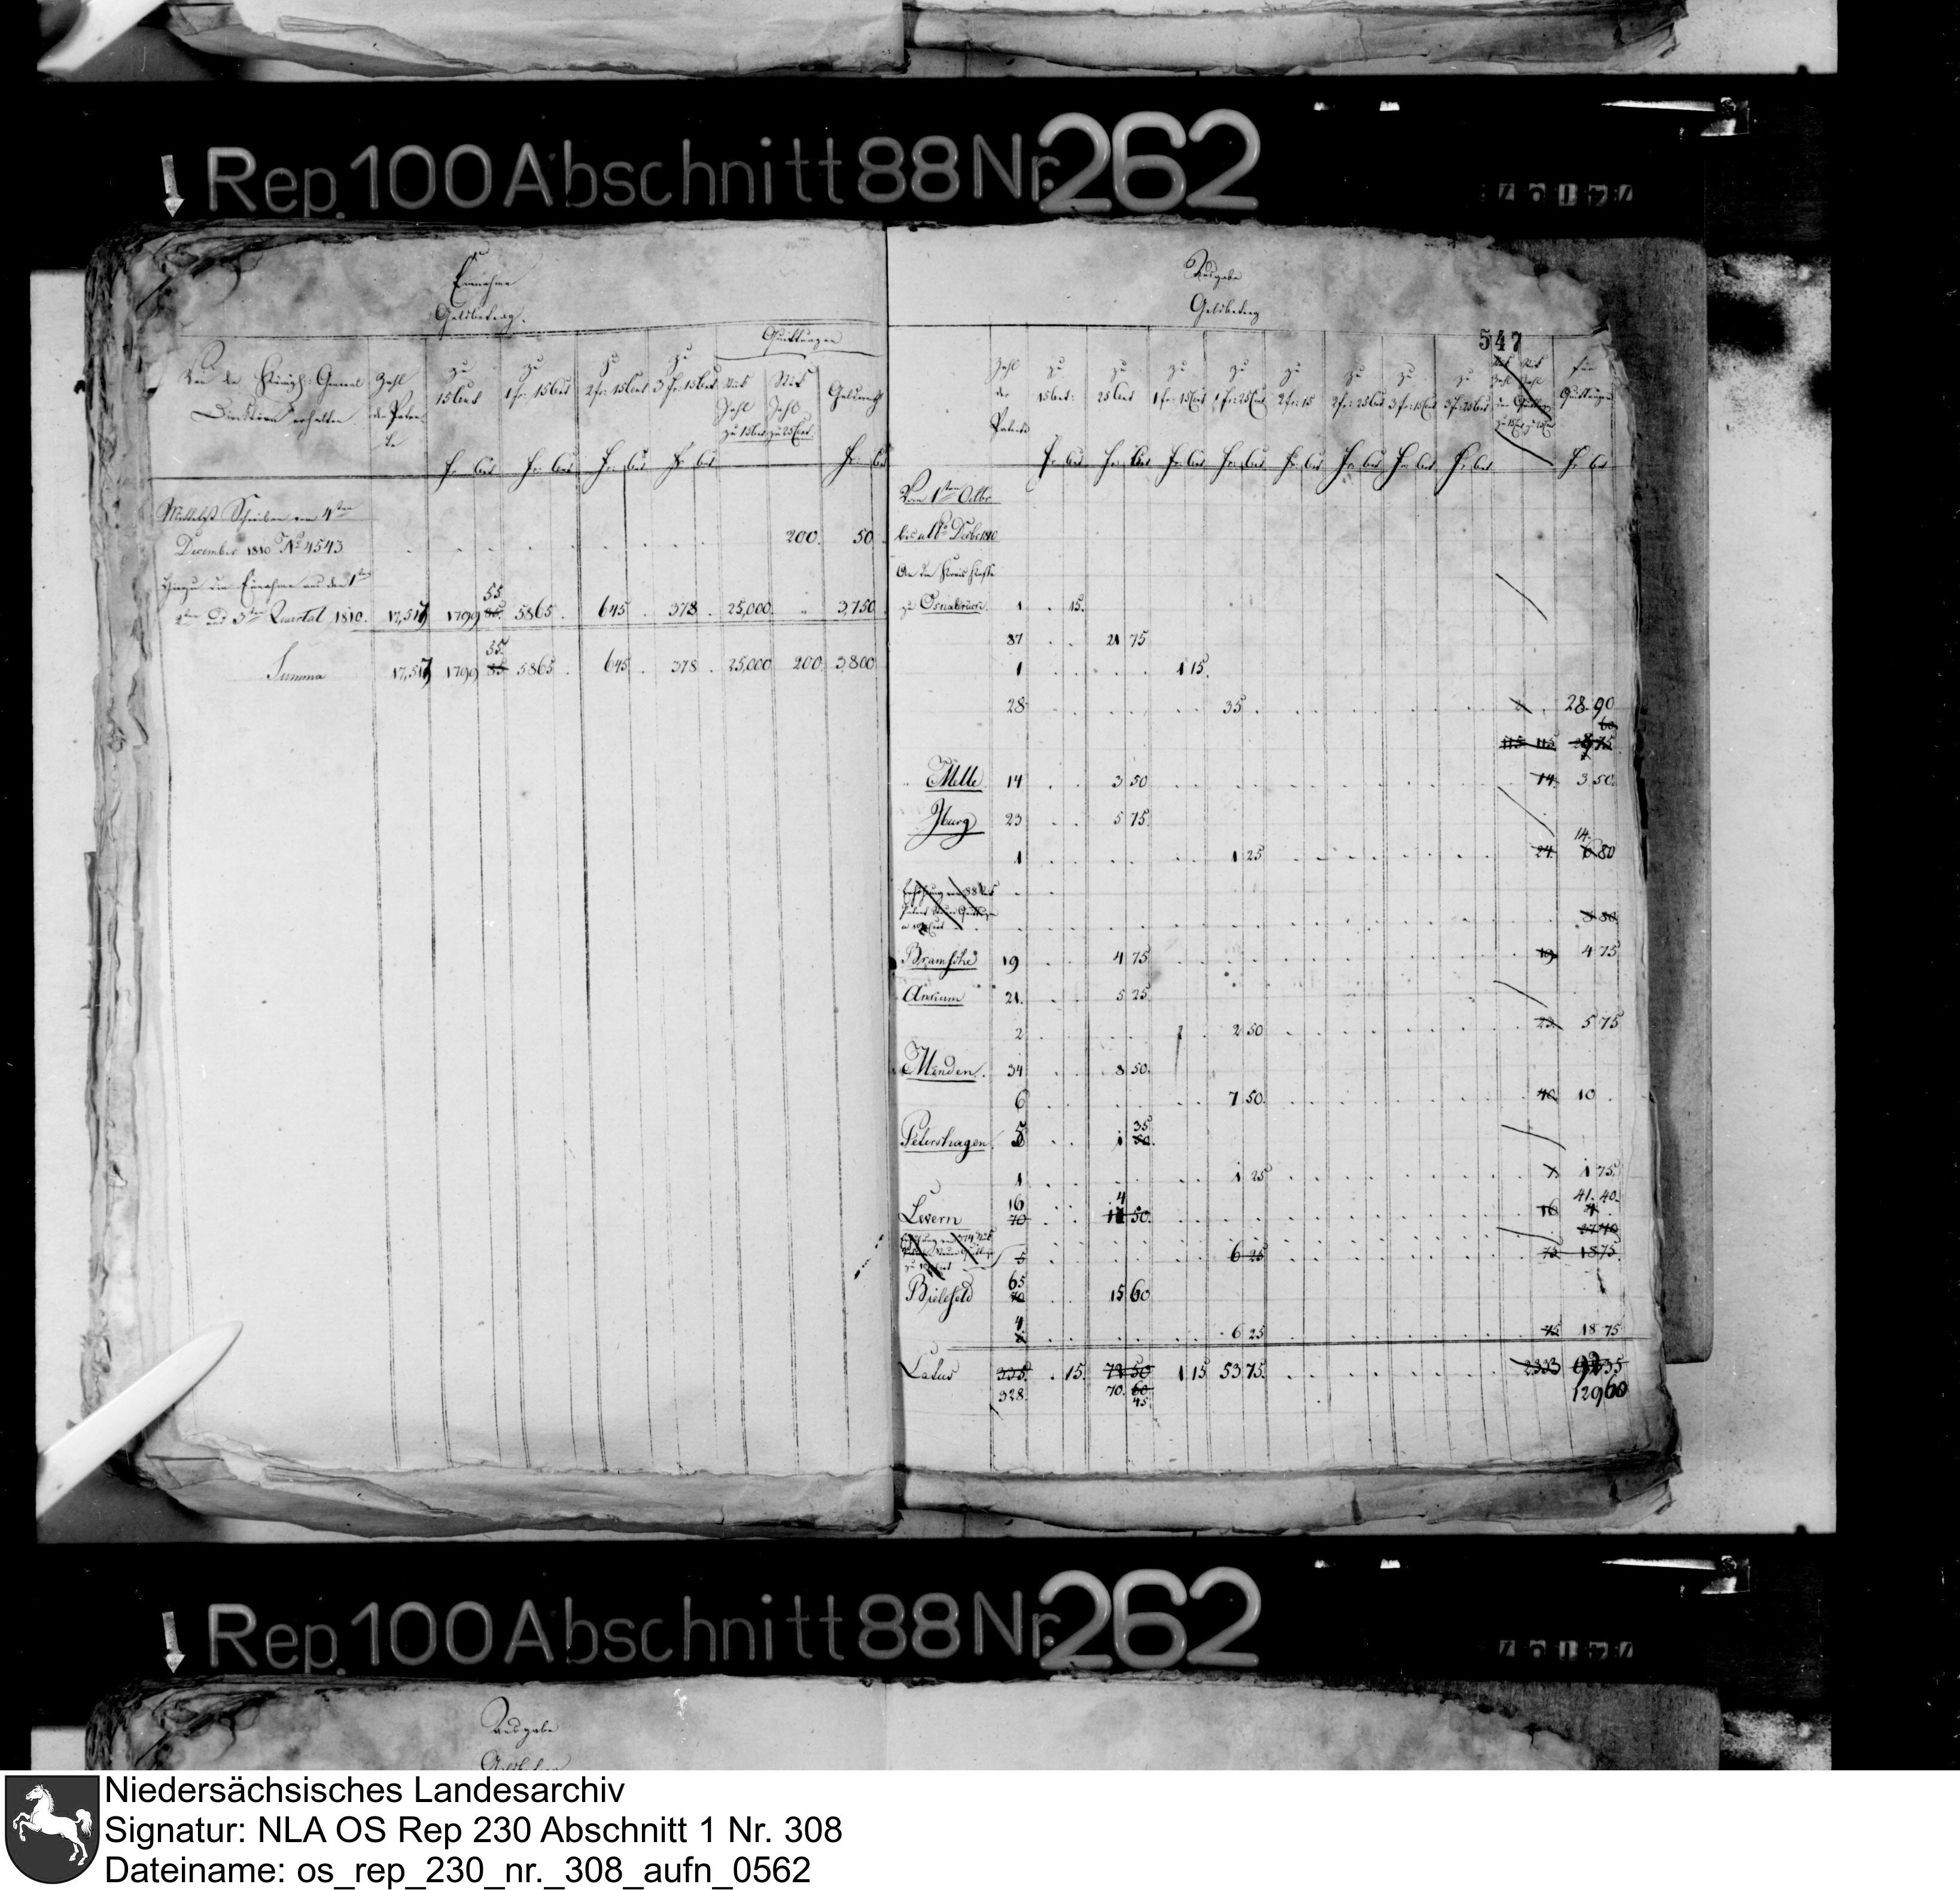 Rep. 100 Abschnitt 88 Nr. 262
Einnahme
Geldbetrag.
Von der Königl: General
Direktion erhalten.
Zahl
der Paten-
te
zu
15 Cent
zu
1 fr: 15 Cent
zu
2 fr: 15 Cent
zu
3 fr: 15 Cent
Quittungen
Zahl
zu 15 Cent
Zahl
zu 25 Cent.
Geldwerth
Fr. Cent Fr. Cent Fr. Cent Fr. Cent Fr. Cent
Mittelst Schreiben vom 4ten
December 1810 No 4543 200. 50.
Hierzu die Einnahme aus dem 1ten
55
2ten und 3ten Quartal 1810. 17,517 1799 5865. 645. 378. 25,000. „ 3,750
55.
Summa 17,517 1799 85 5865. 645. 378. 25,000 200. 3,800
Ausgabe
Geldbetrag
547
Zahl
der
Patente
zu
15 Cent:
zu
25 Cent
zu
1 fr: 15 Cent
zu
1 fr: 25 Cent
zu
2 fr: 15
zu
2 fr: 25 Cent
zu
3 fr: 15 Cent
zu
3 fr: 25 Cent
für
Quittungen
Fr. Cent Fr. Cent Fr. Cent Fr. Cent Fr. Cent Fr. Cent Fr. Cent Fr. Cent Fr. Cent
Vom 1ten Octbr
bis Decbr 1810
An die Kreis Kasse
zu Osnabrück. 1 . 15.
87 21 75
1 1 15.
28 35. 28. 90
60
115 115
Melle 14 3 50 14. 3 50.
Iburg 23 5 75.
14.
1 1 25 24. 6 80
8 80
Bramsche 19 4 75 19 4 75
Ankum 21. 5 25.
2 2 50 23. 5 75
Minden. 34 8 50.
6 7 50. 40 10 .
35
Petershagen 5 1
1 1 25 1 75.
16 4 41. 40.
Levern 70 50. 16
5 6 25 75 18 75.
65
Bielefeld 70 15 60
4
6 25 75 18 75
Latus 335. . 15. 78 50 1 15 53 75. 233 35
328. 70. 60 129 60
45.
Rep. 100 Abschnitt 88 Nr. 262
Ausgabe
Niedersächsisches Landesarchiv
Signatur: NLA OS Rep 230 Abschnitt 1 Nr. 308
Dateiname: os_rep_230_nr._308_aufn_0562